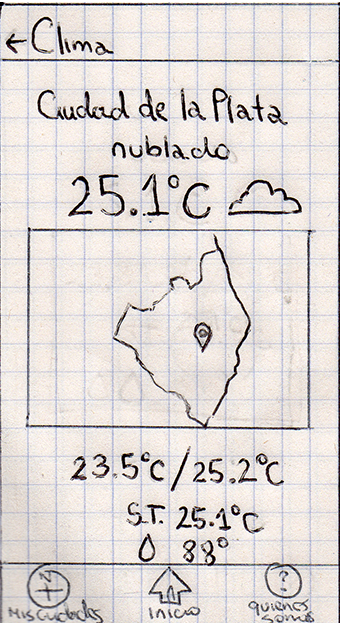 ←Clima
Ciudad de la Plata
nublado
25.1°C
23.5°C/25.2°C
S.T. 25.1°C
88°
N
?
Mis Ciudades
Inicio
quienes somos